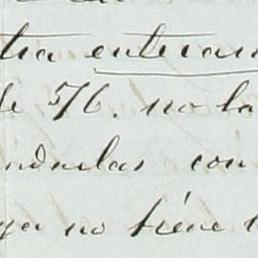 tra enteram
de 576. no la
ndulas con
ya no tiene l